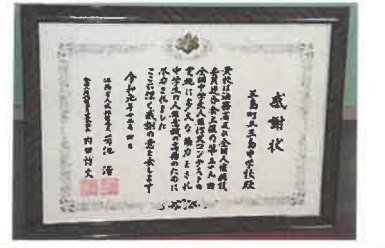 感謝状
三島町立三島中学校殿
貴校は法務省及び全国人権擁護
委員連合会主催の第三十九回
全国中学生人権作文コンテストの
実施に多大な協力をされ
中学生の人権意識の高揚のために
尽力されました
ここに深く感謝の意を表します
令和元年十二月四日
法務省人権擁護局長 菊池 浩
内田博文